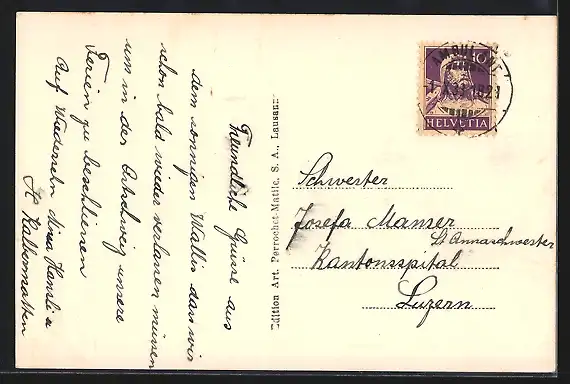 Freundliche Grüsse aus
dem sonnigen Wallis das wir
schon bald wieder verlassen müssen
um in der Ostschweiz unsere
Ferien zu beschliessen
Auf Wiedersehn Mina Hansli u
K Kalbermatten
Edition Art. Perrochet-Matile, S. A., Lausanne
10
HELVETIA
AMBULANT
Schwester
Josefa Manser
St Annaschwester
Kantonsspital
Luzern